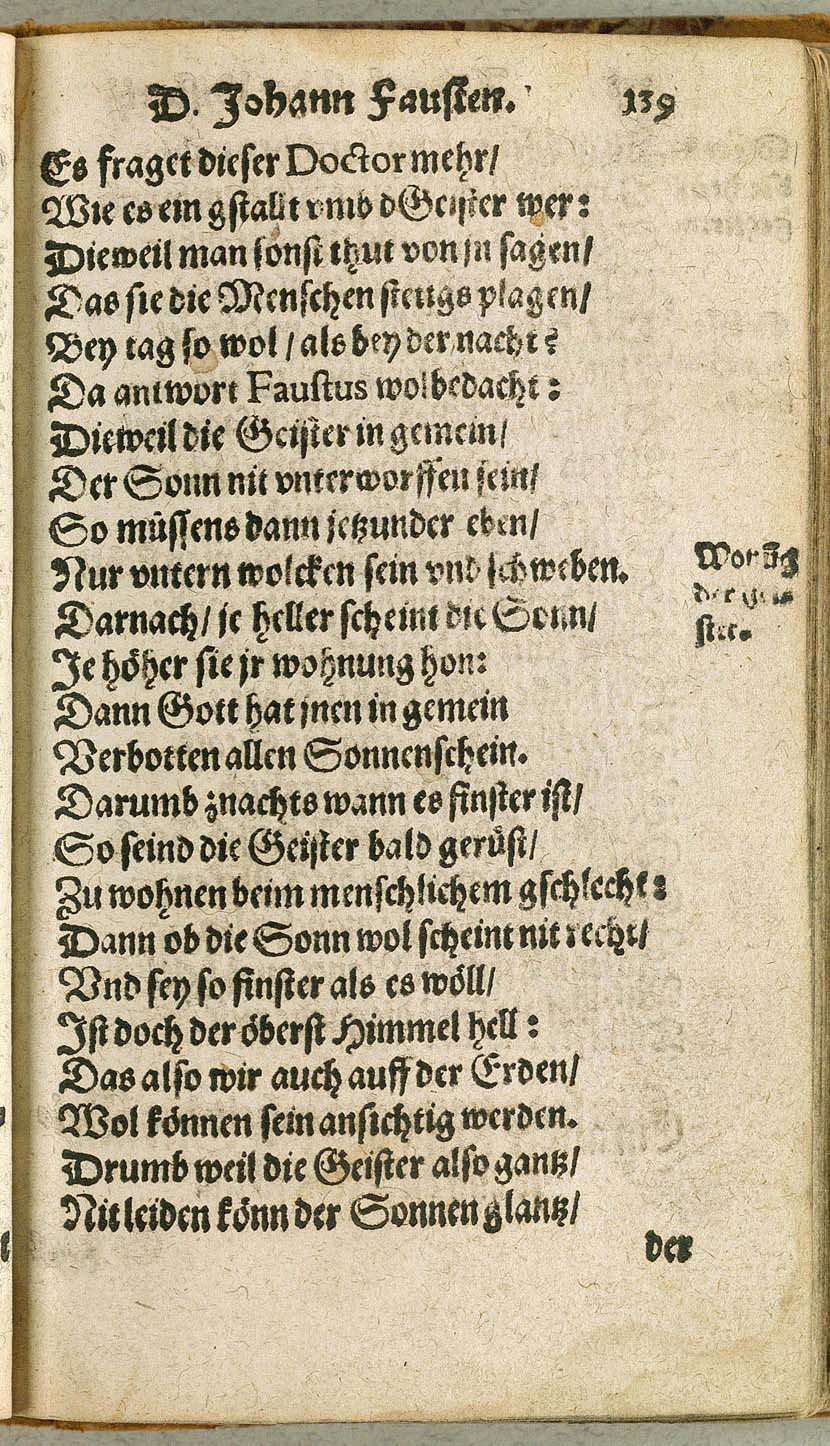 D. Johann Fausten. 139
Es fraget dieser Doctor mehr/
Wie es ein gstallt vmb d Geister wer:
Dieweil man sonst thut von jn sagen/
Das sie die Menschen stettgs plagen/
Bey tag so wol / als bey der nacht?
Da antwort Faustus wolbedacht:
Dieweil die Geister in gemein/
Der Sonn nit vnterworffen sein/
So müssens dann jetzunder eben/
Nur vntern wolcken sein vnd schweben.
Darnach/ je heller scheint die Sonn/
Je höher sie jr wohnung hon:
Dann Gott hat jnen in gemein
Verbotten allen Sonnenschein.
Darumb znachts wann es finster ist/
So seind die Geister bald gerüst/
Zu wohnen beim menschlichem gschlecht:
Dann ob die Sonn wol scheint nit recht/
Vnd sey so finster als es wöll/
Ist doch der öberst Himmel hell:
Das also wir auch auff der Erden/
Wol können sein ansichtig werden.
Drumb weil die Geister also gantz/
Nit leiden könn der Sonnen glantz/
der
der gei-
ster.